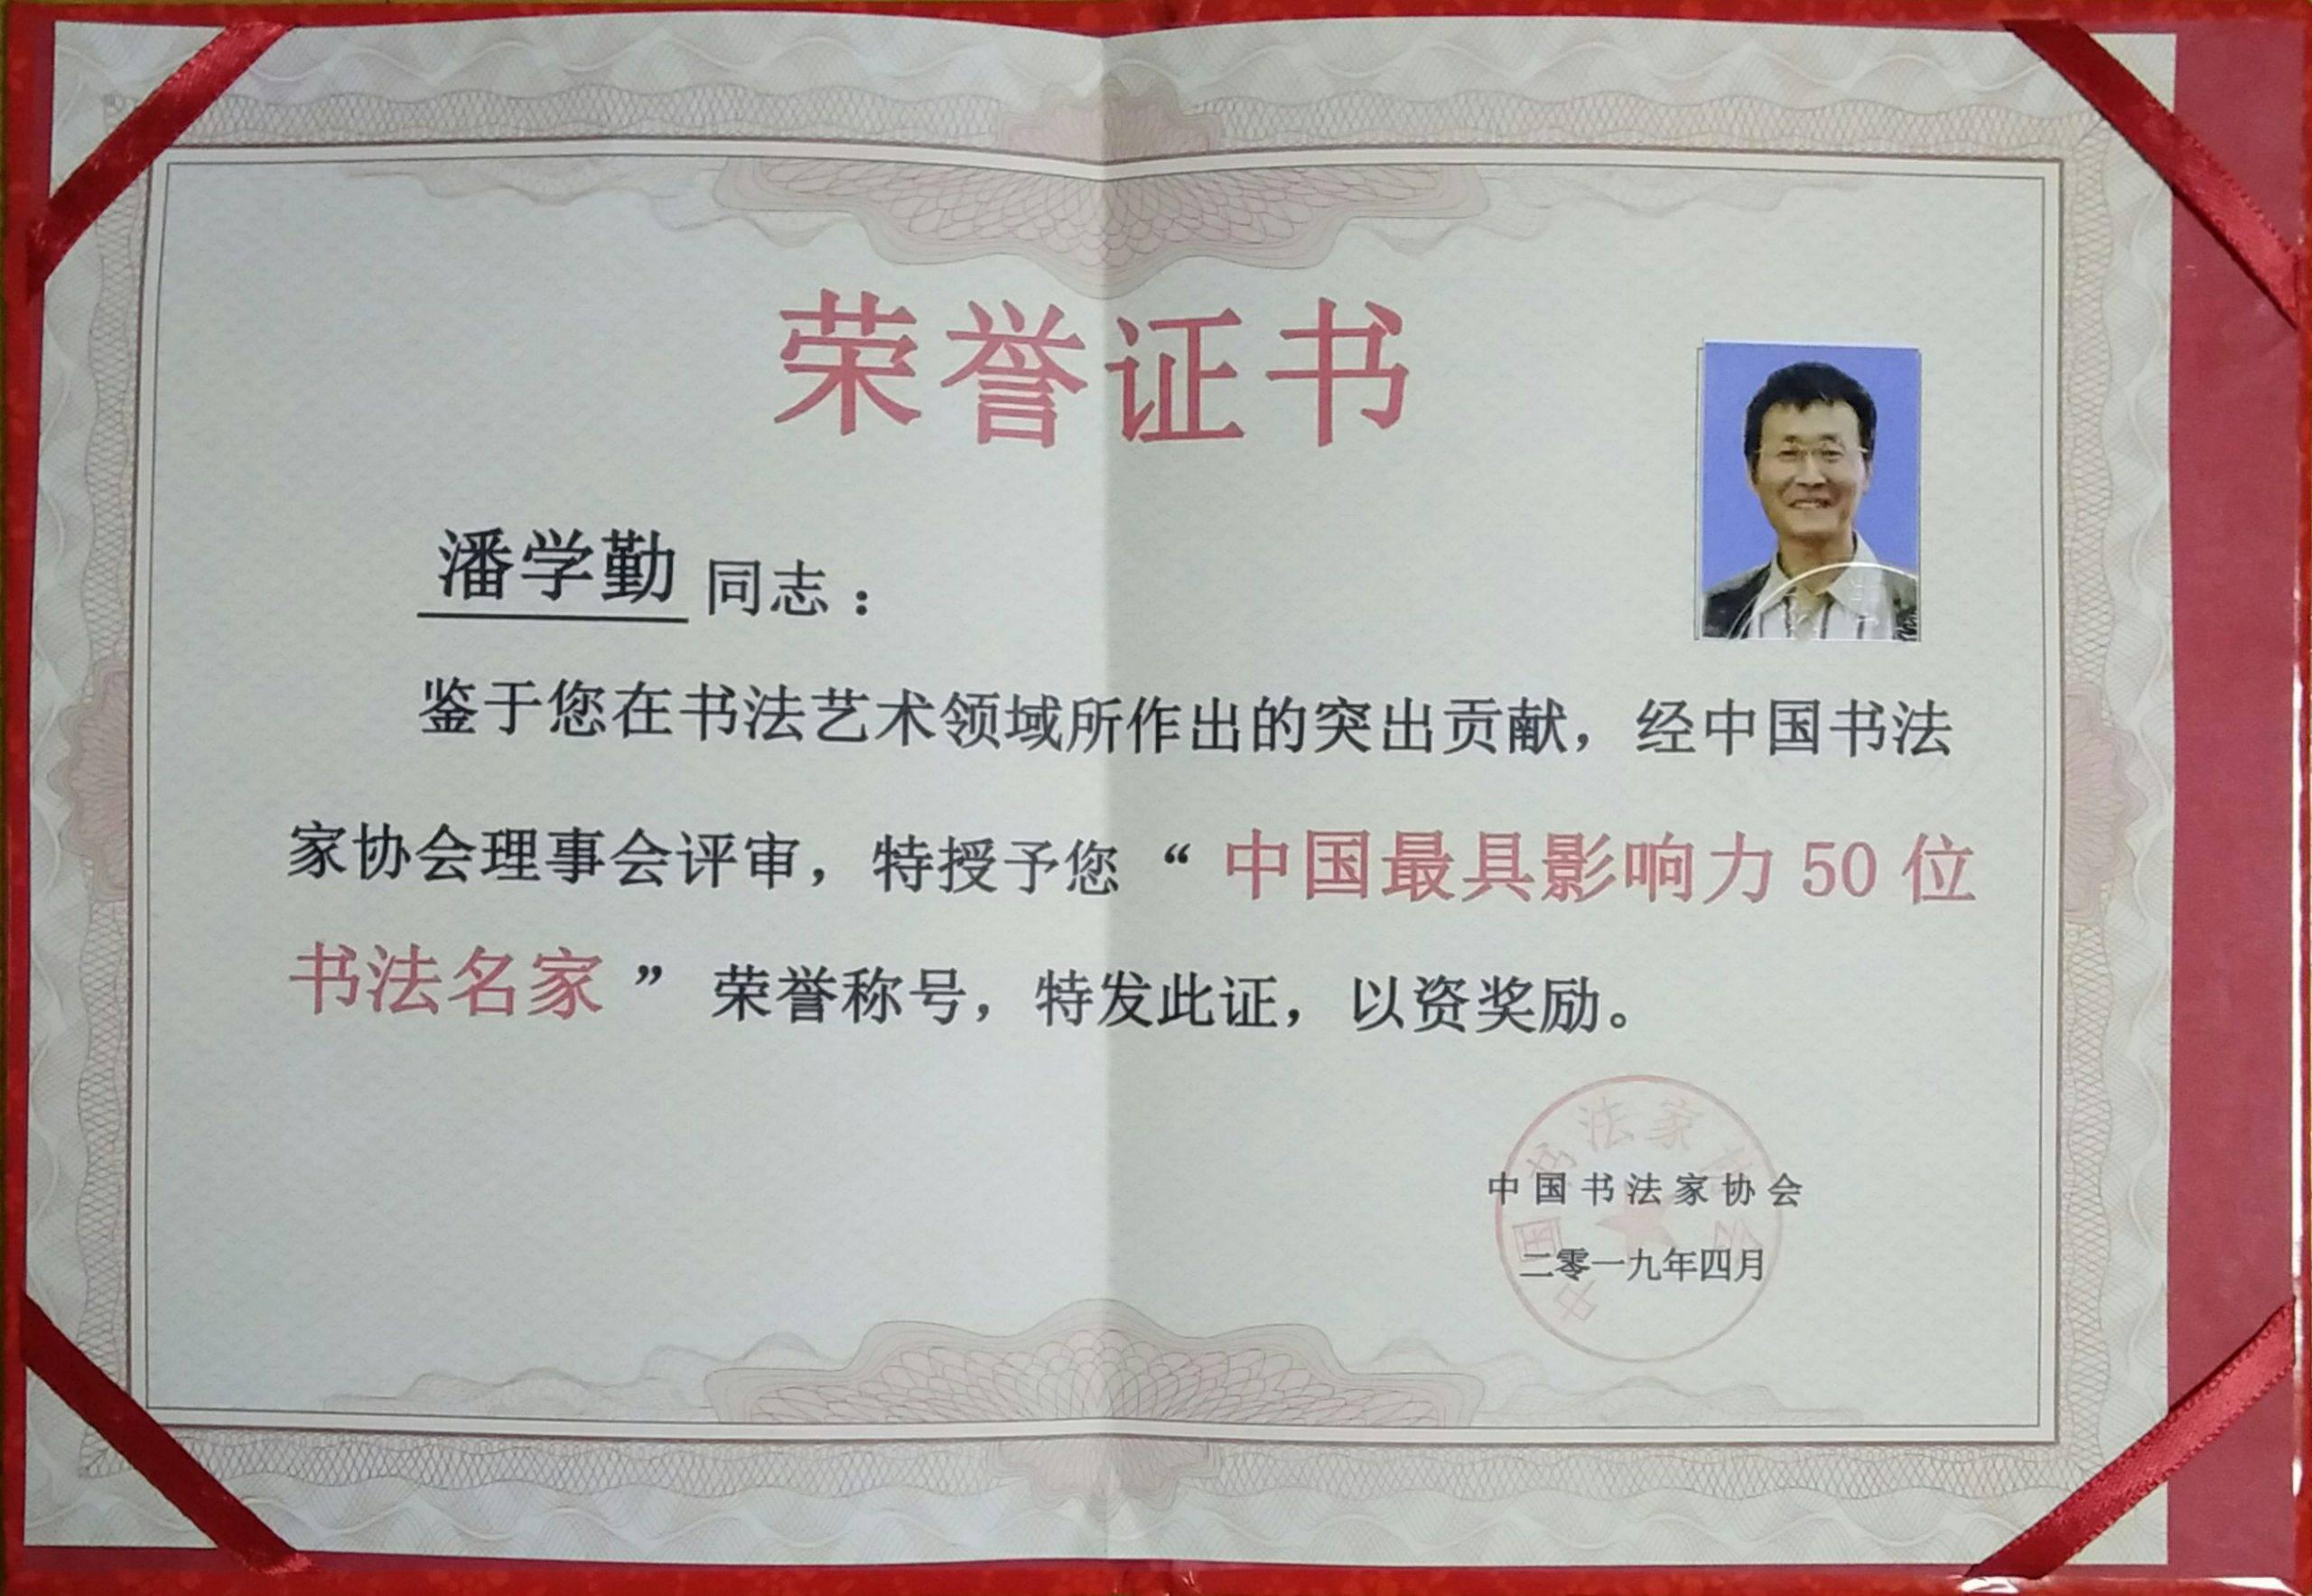 荣誉证书
潘学勤 同志：
鉴于您在书法艺术领域所作出的突出贡献，经中国书法
家协会理事会评审，特授予您“中国最具影响力 50 位
书法名家”荣誉称号，特发此证，以资奖励。
中国书法家协会
中国书法家协会
二零一九年四月